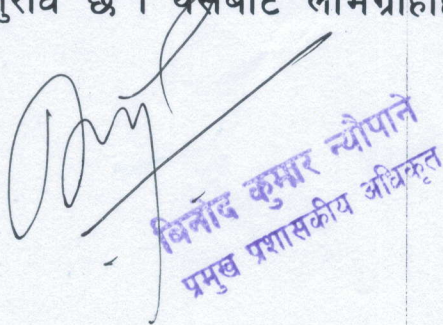 छ । यसबाट
विनोद कुमार न्यौपाने
प्रमुख प्रशासकीय अधिकृत